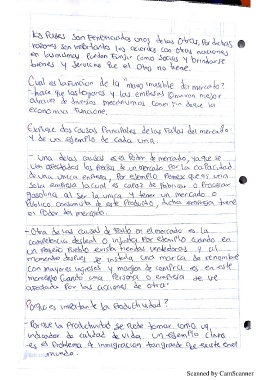 los Países son Beneficiados unos de los Otros, Por dichas
razones son importantes los acuerdos con otras naciones
en la medida Puedan Fungir como Socios y brindarse
bienes y servicios que el Otro no tiene.
Cual es la función de la "mano invisible del mercado?
- hace que los hogares y las empresas
a través de diversos mecanismos con el fin de que la
economía funcione.
Explique dos Causas Principales de los Fallos del mercado
y dé un ejemplo de cada una.
- Una de las causas es el Poder de mercado, ya que se
un mercado Por la capacidad
de una unica empresa, Por ejemplo Ponese que si una
sola empresa la cual es capaz de fabricar o Procesar
gasolina al ser la única y tener un mercado o
Público consumista de este Producto, dicha empresa tiene
el Poder del mercado.
- Otra de las causal de fallo en el mercado es la
competencia desleal o injusta Por ejemplo cuando en
un mismo Pueblo existen tiendas vendedores y al
momento después se instala una marca de renombre
con mayores ingresos y margen de compra es en este
momento Cuando una Persona o empresa se ve
afectada Por las acciones de otra.
Porque es importante la Productividad?
- Porque la Productividad se Puede tomar como un
indicador de calidad de vida. Un ejemplo claro
es el Problema de inmigracion tan grande que existe en el
mundo.
Scanned by CamScanner